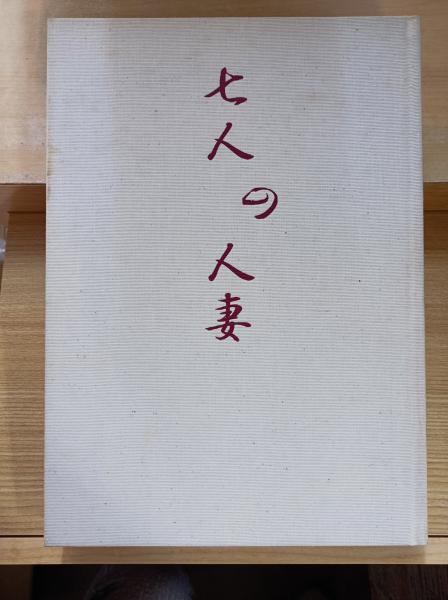 七人の人妻